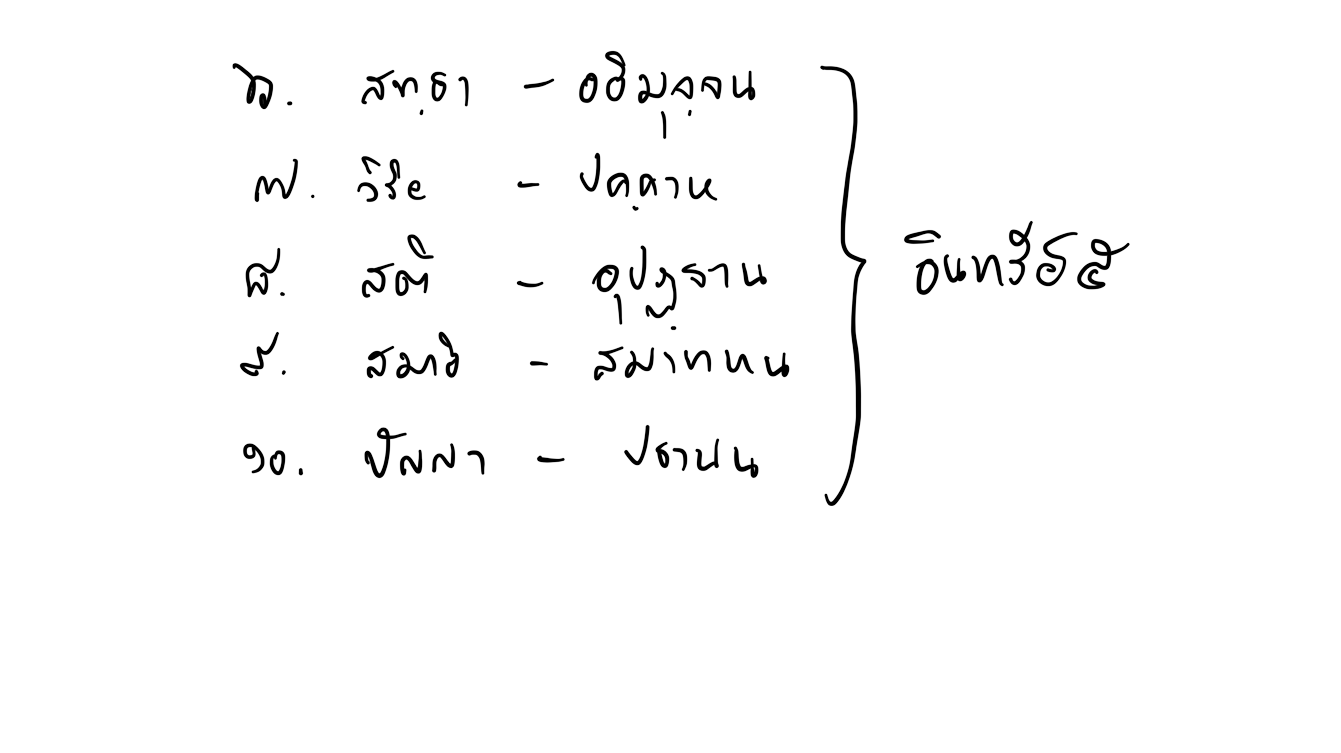 ๖. สทฺธา - อธิมุจฺจน
๗. วิริย - ปคฺคาห
๘. สติ - อุปฏฺฐาน
๙. สมาธิ - สมาทหน
๑๐. ปัญญา - ปชานน
อินทรีย์ ๕